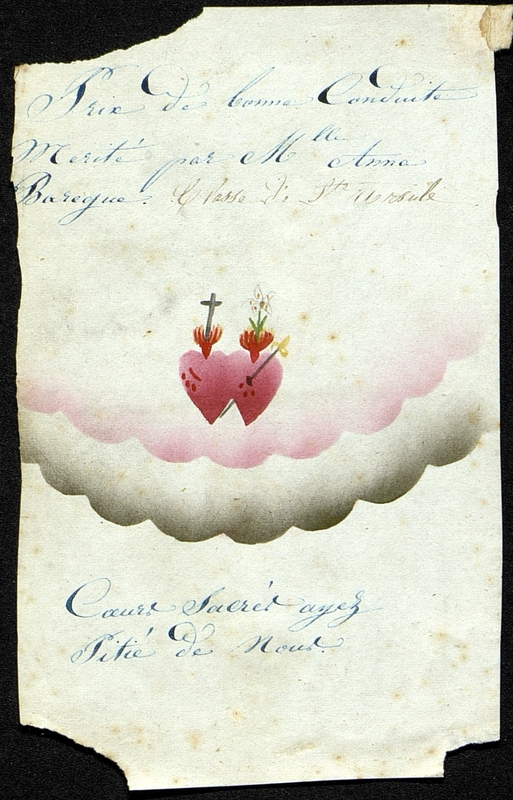 Prix de bonne Conduite
Merité par Mlle Anna
Baregue. Classe de Ste Ursule
Cœurs Sacrés ayez
Pitié de Nous.